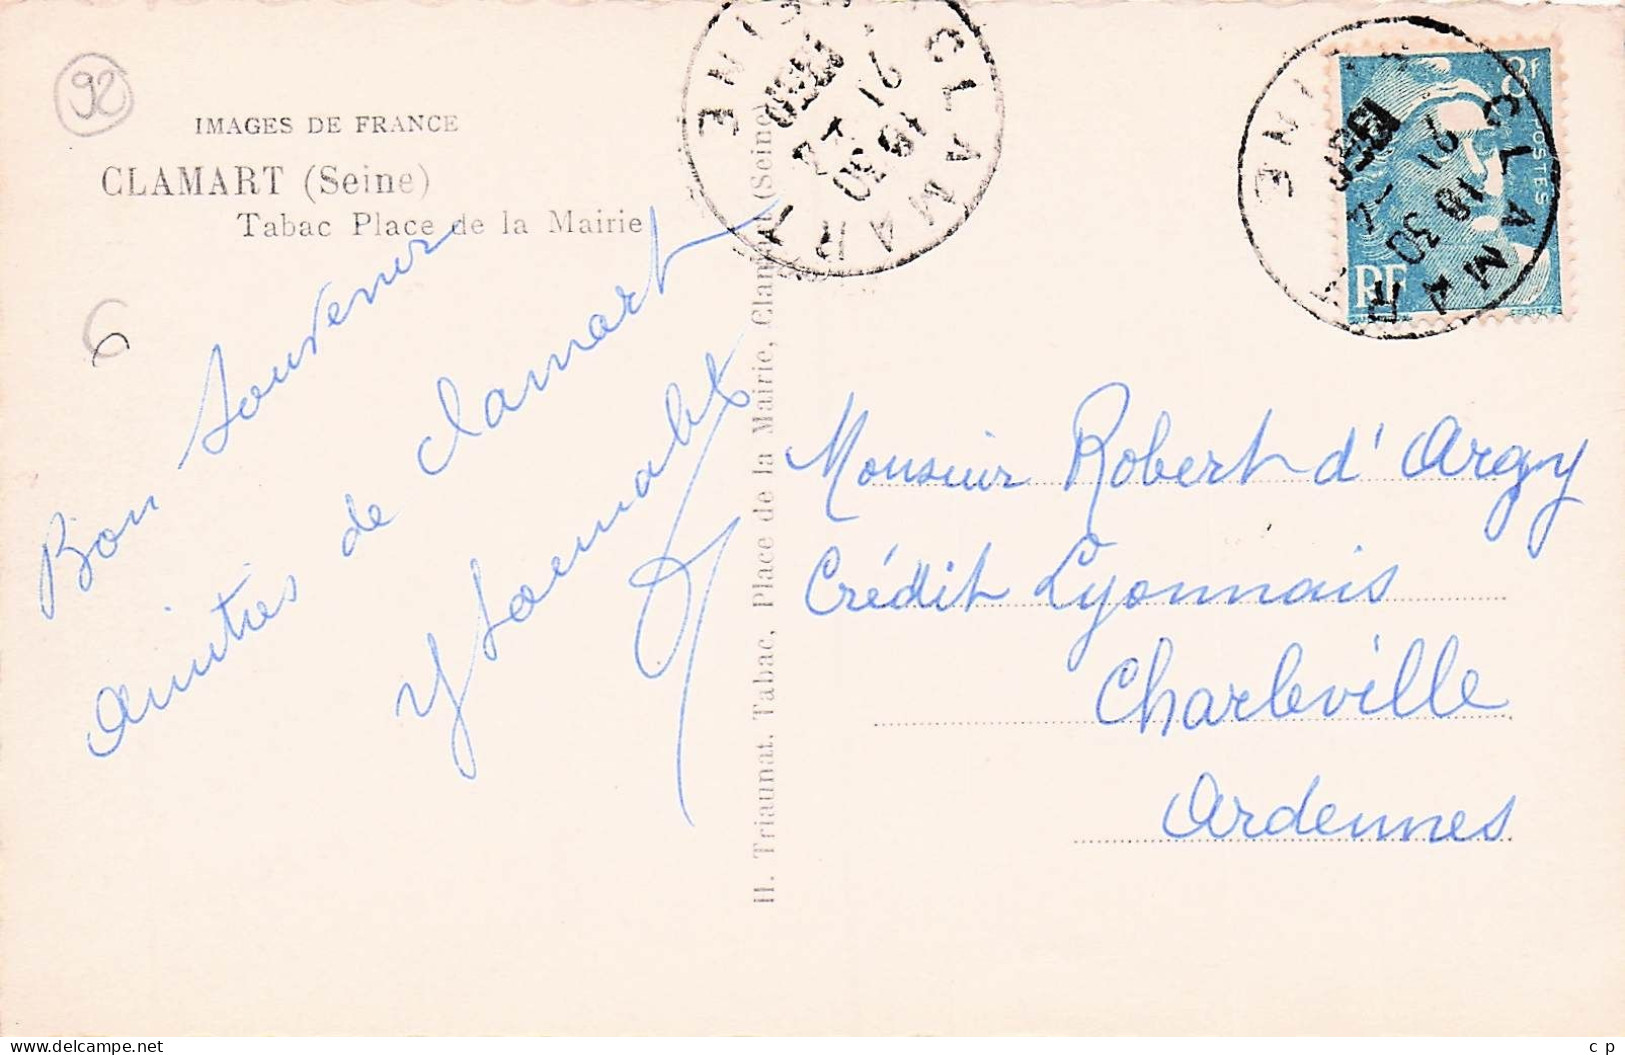 92
IMAGES DE FRANCE
CLAMART (Seine)
Tabac Place de la Mairie
6
Bon Souvenir
amitiés de Clamart
H. Triaunat, Tabac, Place de la Mairie, Clamart (Seine)
CLAMART
SEINE
16 30
21
CLAMART
SEINE
16 30
21
8f
POSTES
RF
Monsieur Robert d'Argy
Crédit Lyonnais
Charleville
Ardennes
delcampe.net
cp